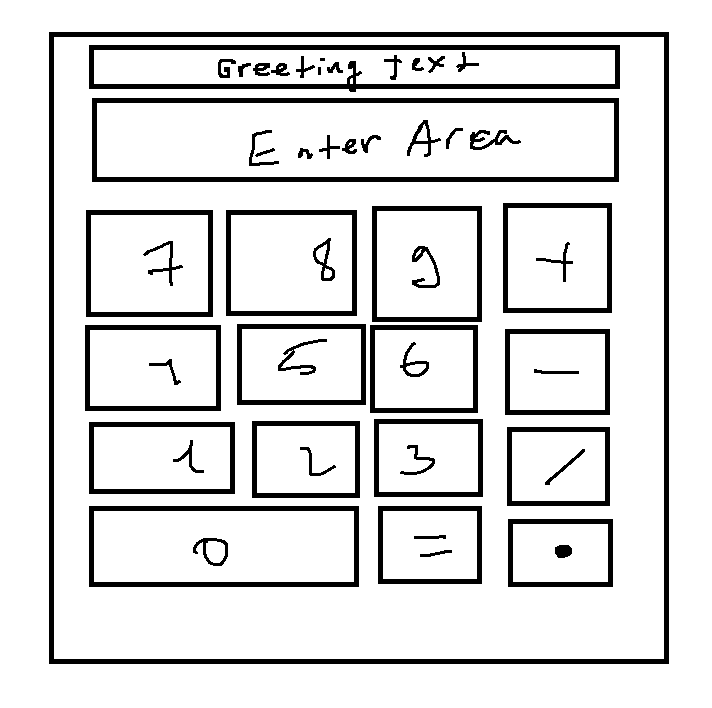 Greeting text
Enter Area
7 8 9 +
5 6 -
1 2 3 /
0 = •